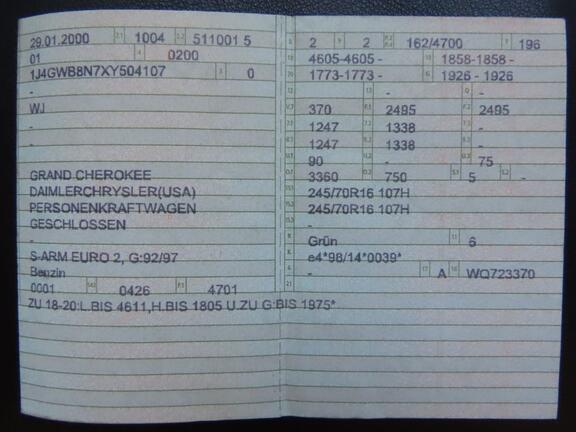 29.01.2000 2.1 1004 2.2 511001 5
01 4 0200
1J4GWB8N7XY504107 3 0
-
WJ
-
-
GRAND CHEROKEE
DAIMLERCHRYSLER(USA)
PERSONENKRAFTWAGEN
GESCHLOSSEN
-
S-ARM EURO 2, G:92/97
Benzin
0001 0426 4701
2 9 2 162/4700 196
4605-4605 - 1858-1858 -
1773-1773 - 1926 - 1926
- -
370 2495 2495
1247 1338 -
1247 1338 -
90 - 75
3360 750 5 -
245/70R16 107H
245/70R16 107H
-
Grün 6
e4*98/14*0039*
- 17 A WQ723370
21
ZU 18-20:L.BIS 4611,H.BIS 1805 U.ZU G:BIS 1975*